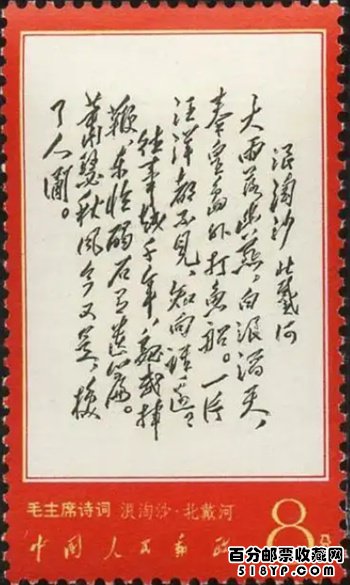 浪淘沙 北戴河
大雨落幽燕,白浪滔天,
秦皇岛外打鱼船。一片
汪洋都不见,知向谁边
往事越千年,魏武挥
鞭,东临碣石有遗篇。
萧瑟秋风今又是,换
了人间。
毛主席诗词 浪淘沙·北戴河
8分
中国人民邮政
百分邮票收藏网
518YP.com